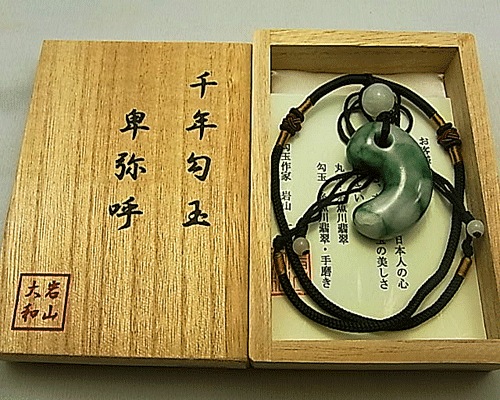 千年勾玉
卑弥呼
岩山
大和
お客様
日本人の心
玉の美しさ
魚川翡翠
勾玉 魚川翡翠・手磨き
勾玉作家 岩山